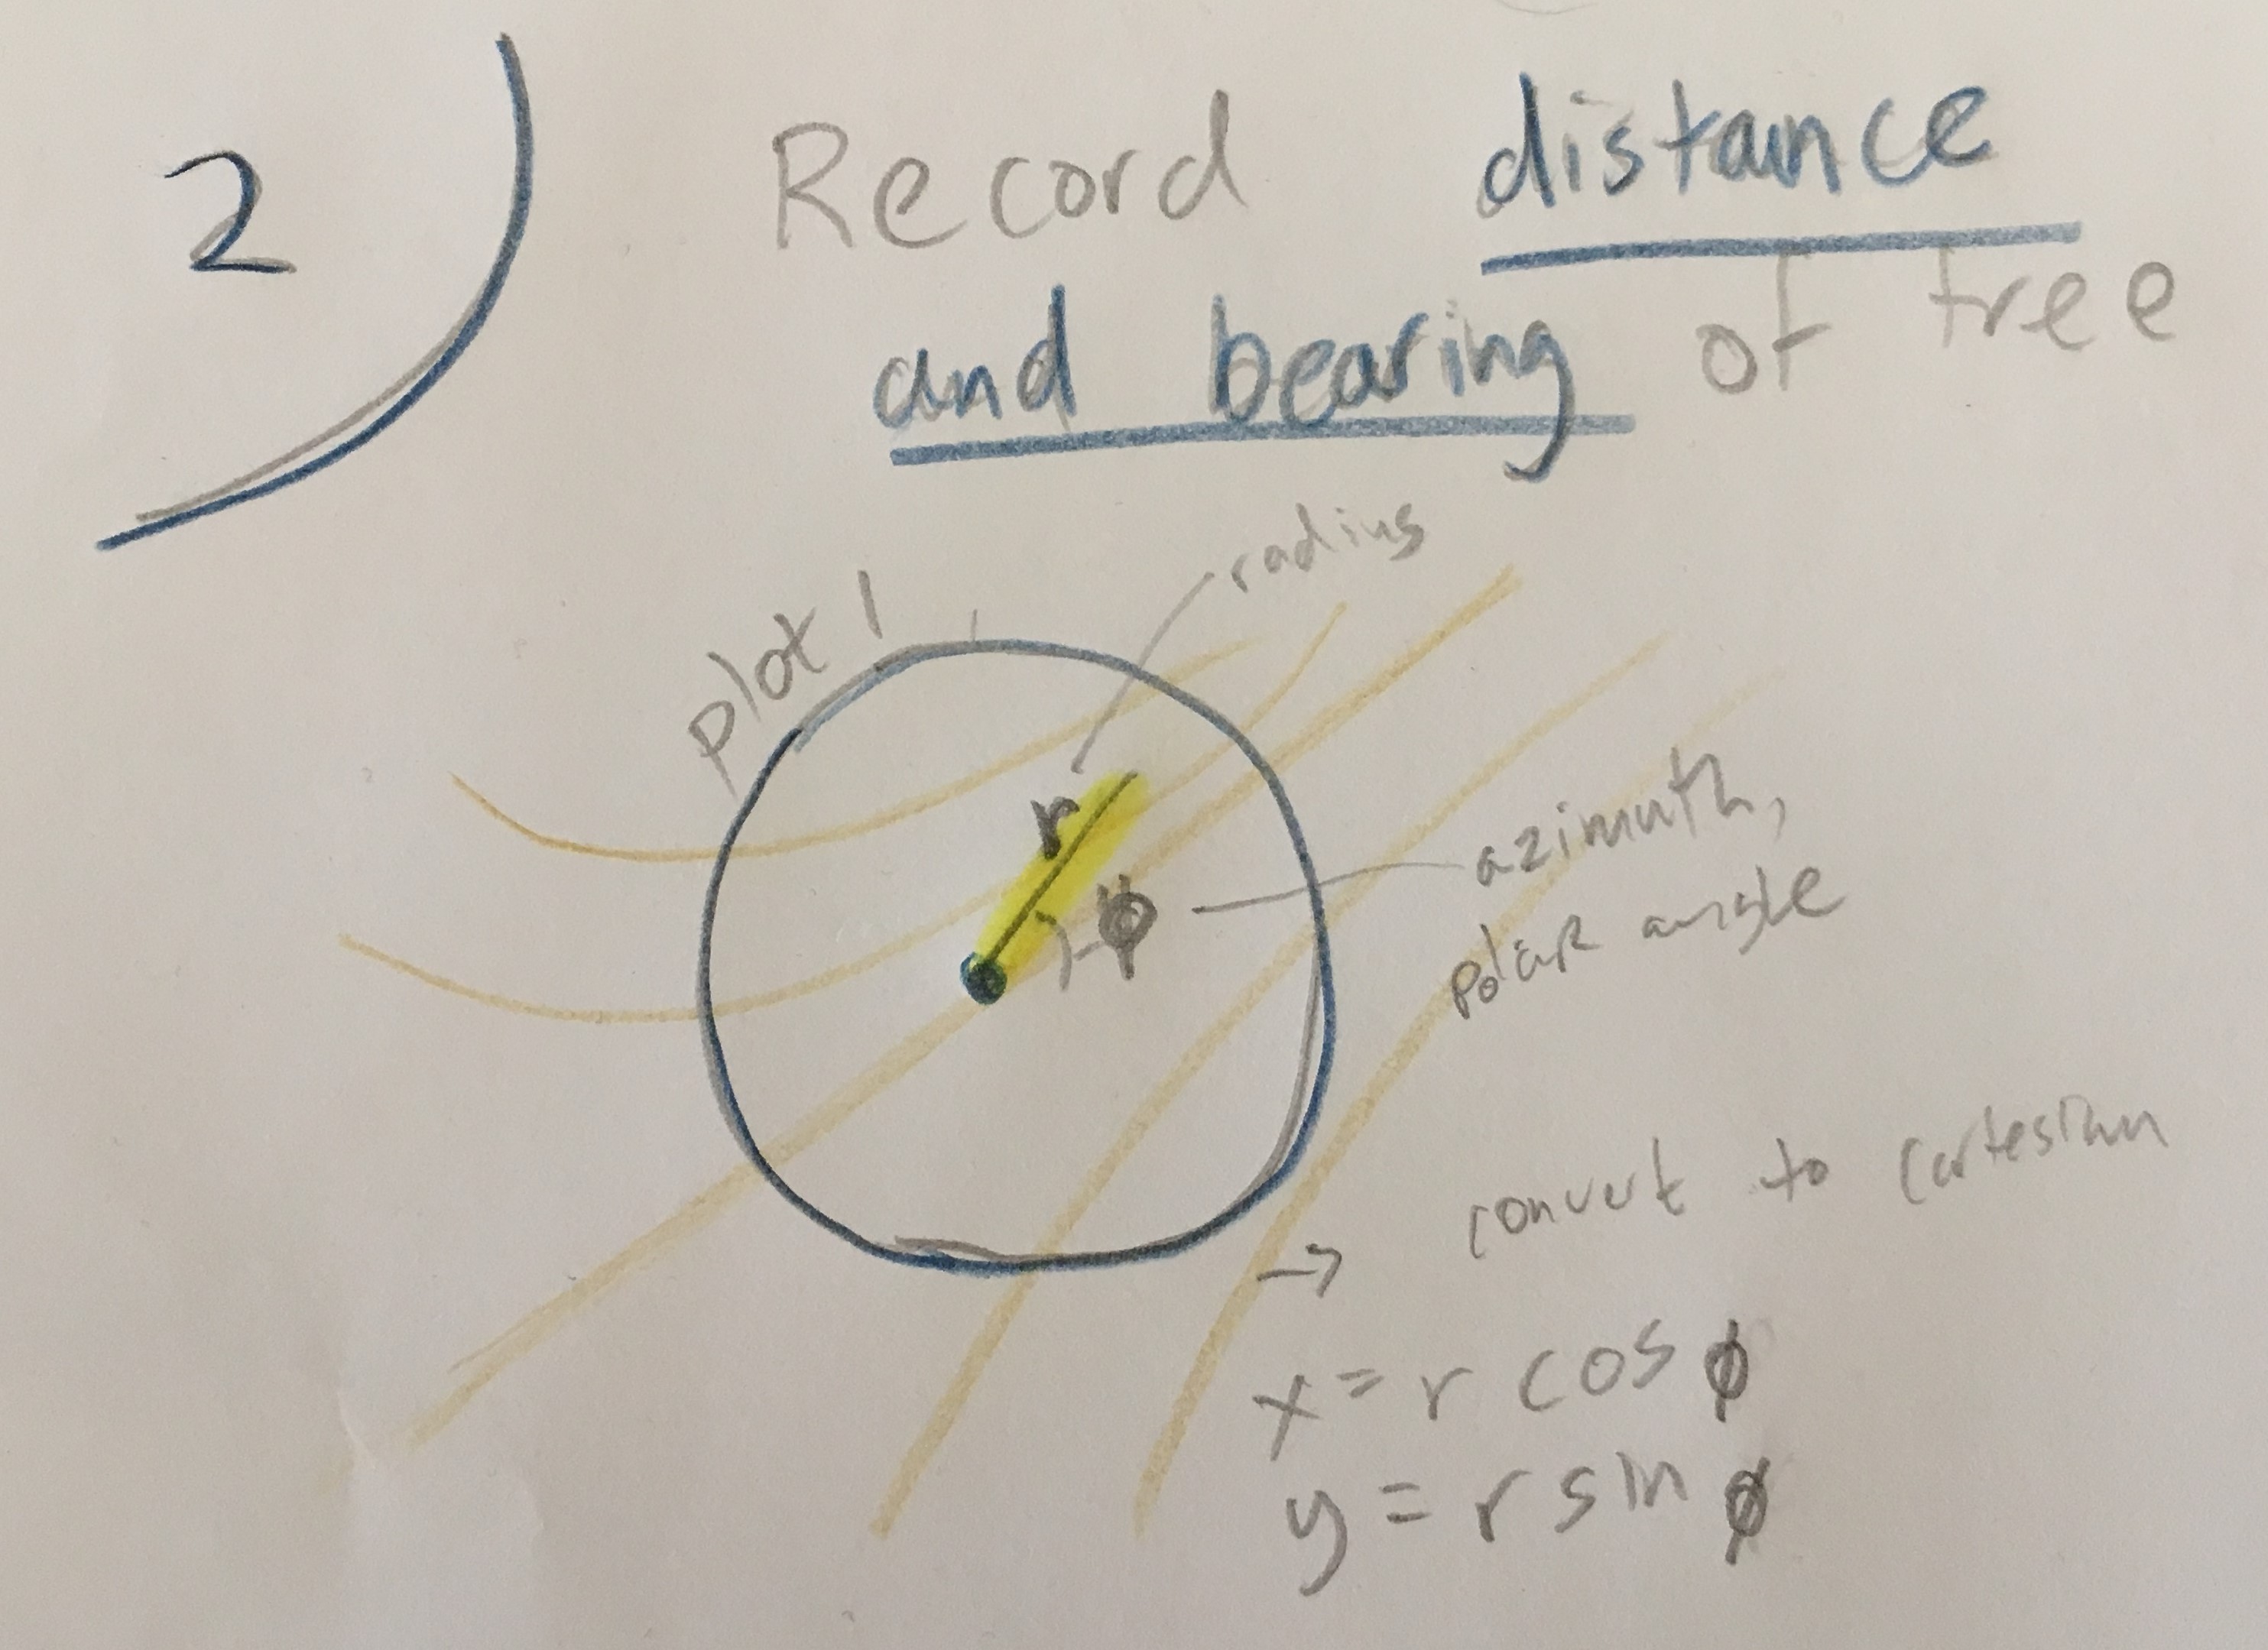 2
Record distance
and bearing of tree
radius
plot 1
r
ϕ
azimuth,
polar angle
→ convert to cartesian
x = r cos ϕ
y = r sin ϕ